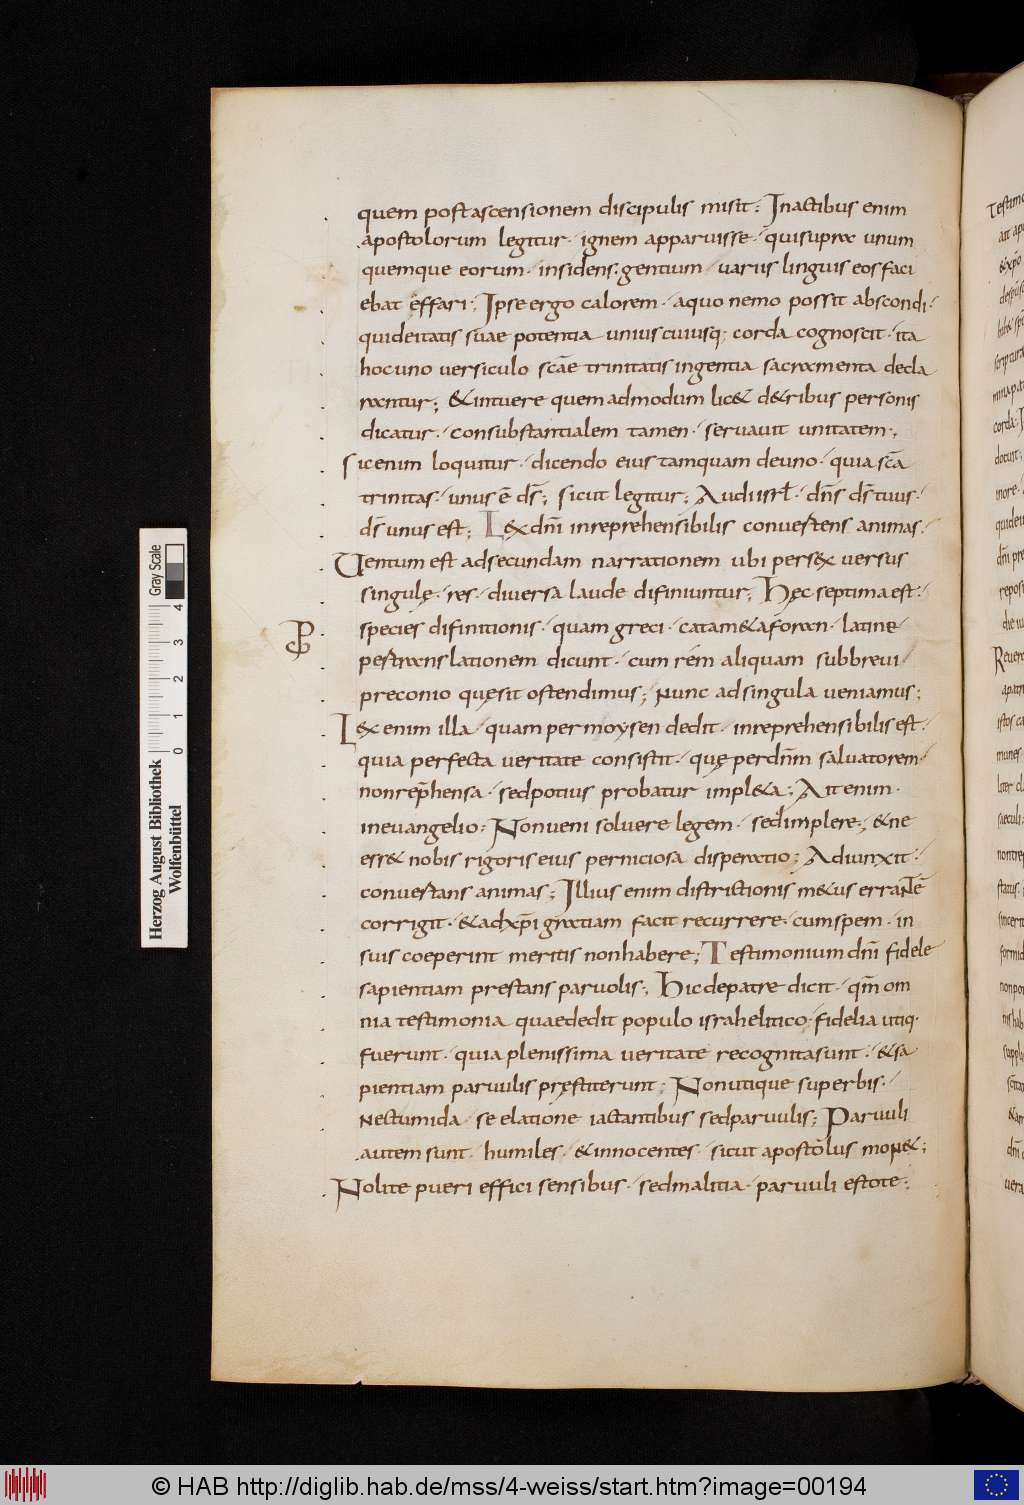 quem postascensionem discipulis misit: Inactibus enim
apostolorum legitur· ignem apparuisse· quisupra unum
quemque eorum· insidens; gentium· variis linguis eos faci
ebat effari; Ipse ergo calorem· aquo nemo possit abscondi·
quideitatis suae potentia unius cuiusq; corda cognoscit· ita
hocuno versiculo scāe trinitatis ingentia sacramenta decla
rantur; &intuere quemadmodum lic& d&ribus personis
dicatur· consubstantialem tamen· servavit unitatem·,
Sicenim loquitur· dicendo eius tamquam deuno· quia scā
trinitas· unus ē ds̄; sicut legitur; Audi isrl̄· dn̄s ds̄ tuus·
ds̄ unus est; Lex dn̄i inreprehensibilis convertens animas·
Uentum est adsecundam narrationem ubi persex versus
singulę· res· diversa laude difiniuntur; Hęc septima est·
species difinitionis· quam greci· catam&aforan· latine
pertranslationem dicunt· cum rem aliquam subbrevi
preconio quęsit ostendimus; nunc adsingula veniamus;
Lex enim illa· quam per moysen dedit· inreprehensibilis est·
quia perfecta veritate consistit· quę perdn̄m salvatorem·
nonrep̄hensa· sedpotius probatur impl&a; Ait enim·
inevangelio: Nonveni solvere legem· sed implere; &ne
ess& nobis rigoris eius perniciosa disperatio; Adiunxit·
convertans animas; Illius enim districtionis m&us errantē
corrigit· &adxp̄i gratiam facit recurrere· cumspem· in
suis coeperint meritis nonhabere; Testimonium dn̄i fidele
sapientiam prestans parvolis; Hic depatre dicit· qm̄ om
nia testimonia quaededit populo israhelitico· fidelia utiq·
fuerunt· quia plenissima veritate recognitasunt· &sa
pientiam parvulis pręstiterunt; Nonutique superbis·
nectumida· se elatione iactantibus sedparvulis; Parvuli
autem sunt· humiles· &innocentes· sicut apostolus mon&;
Nolite pueri effici sensibus· sedmalitia· parvuli estote;
Herzog August Bibliothek
Wolfenbüttel
0 1 2 3 4 Gray Scale
© HAB http://diglib.hab.de/mss/4-weiss/start.htm?image=00194